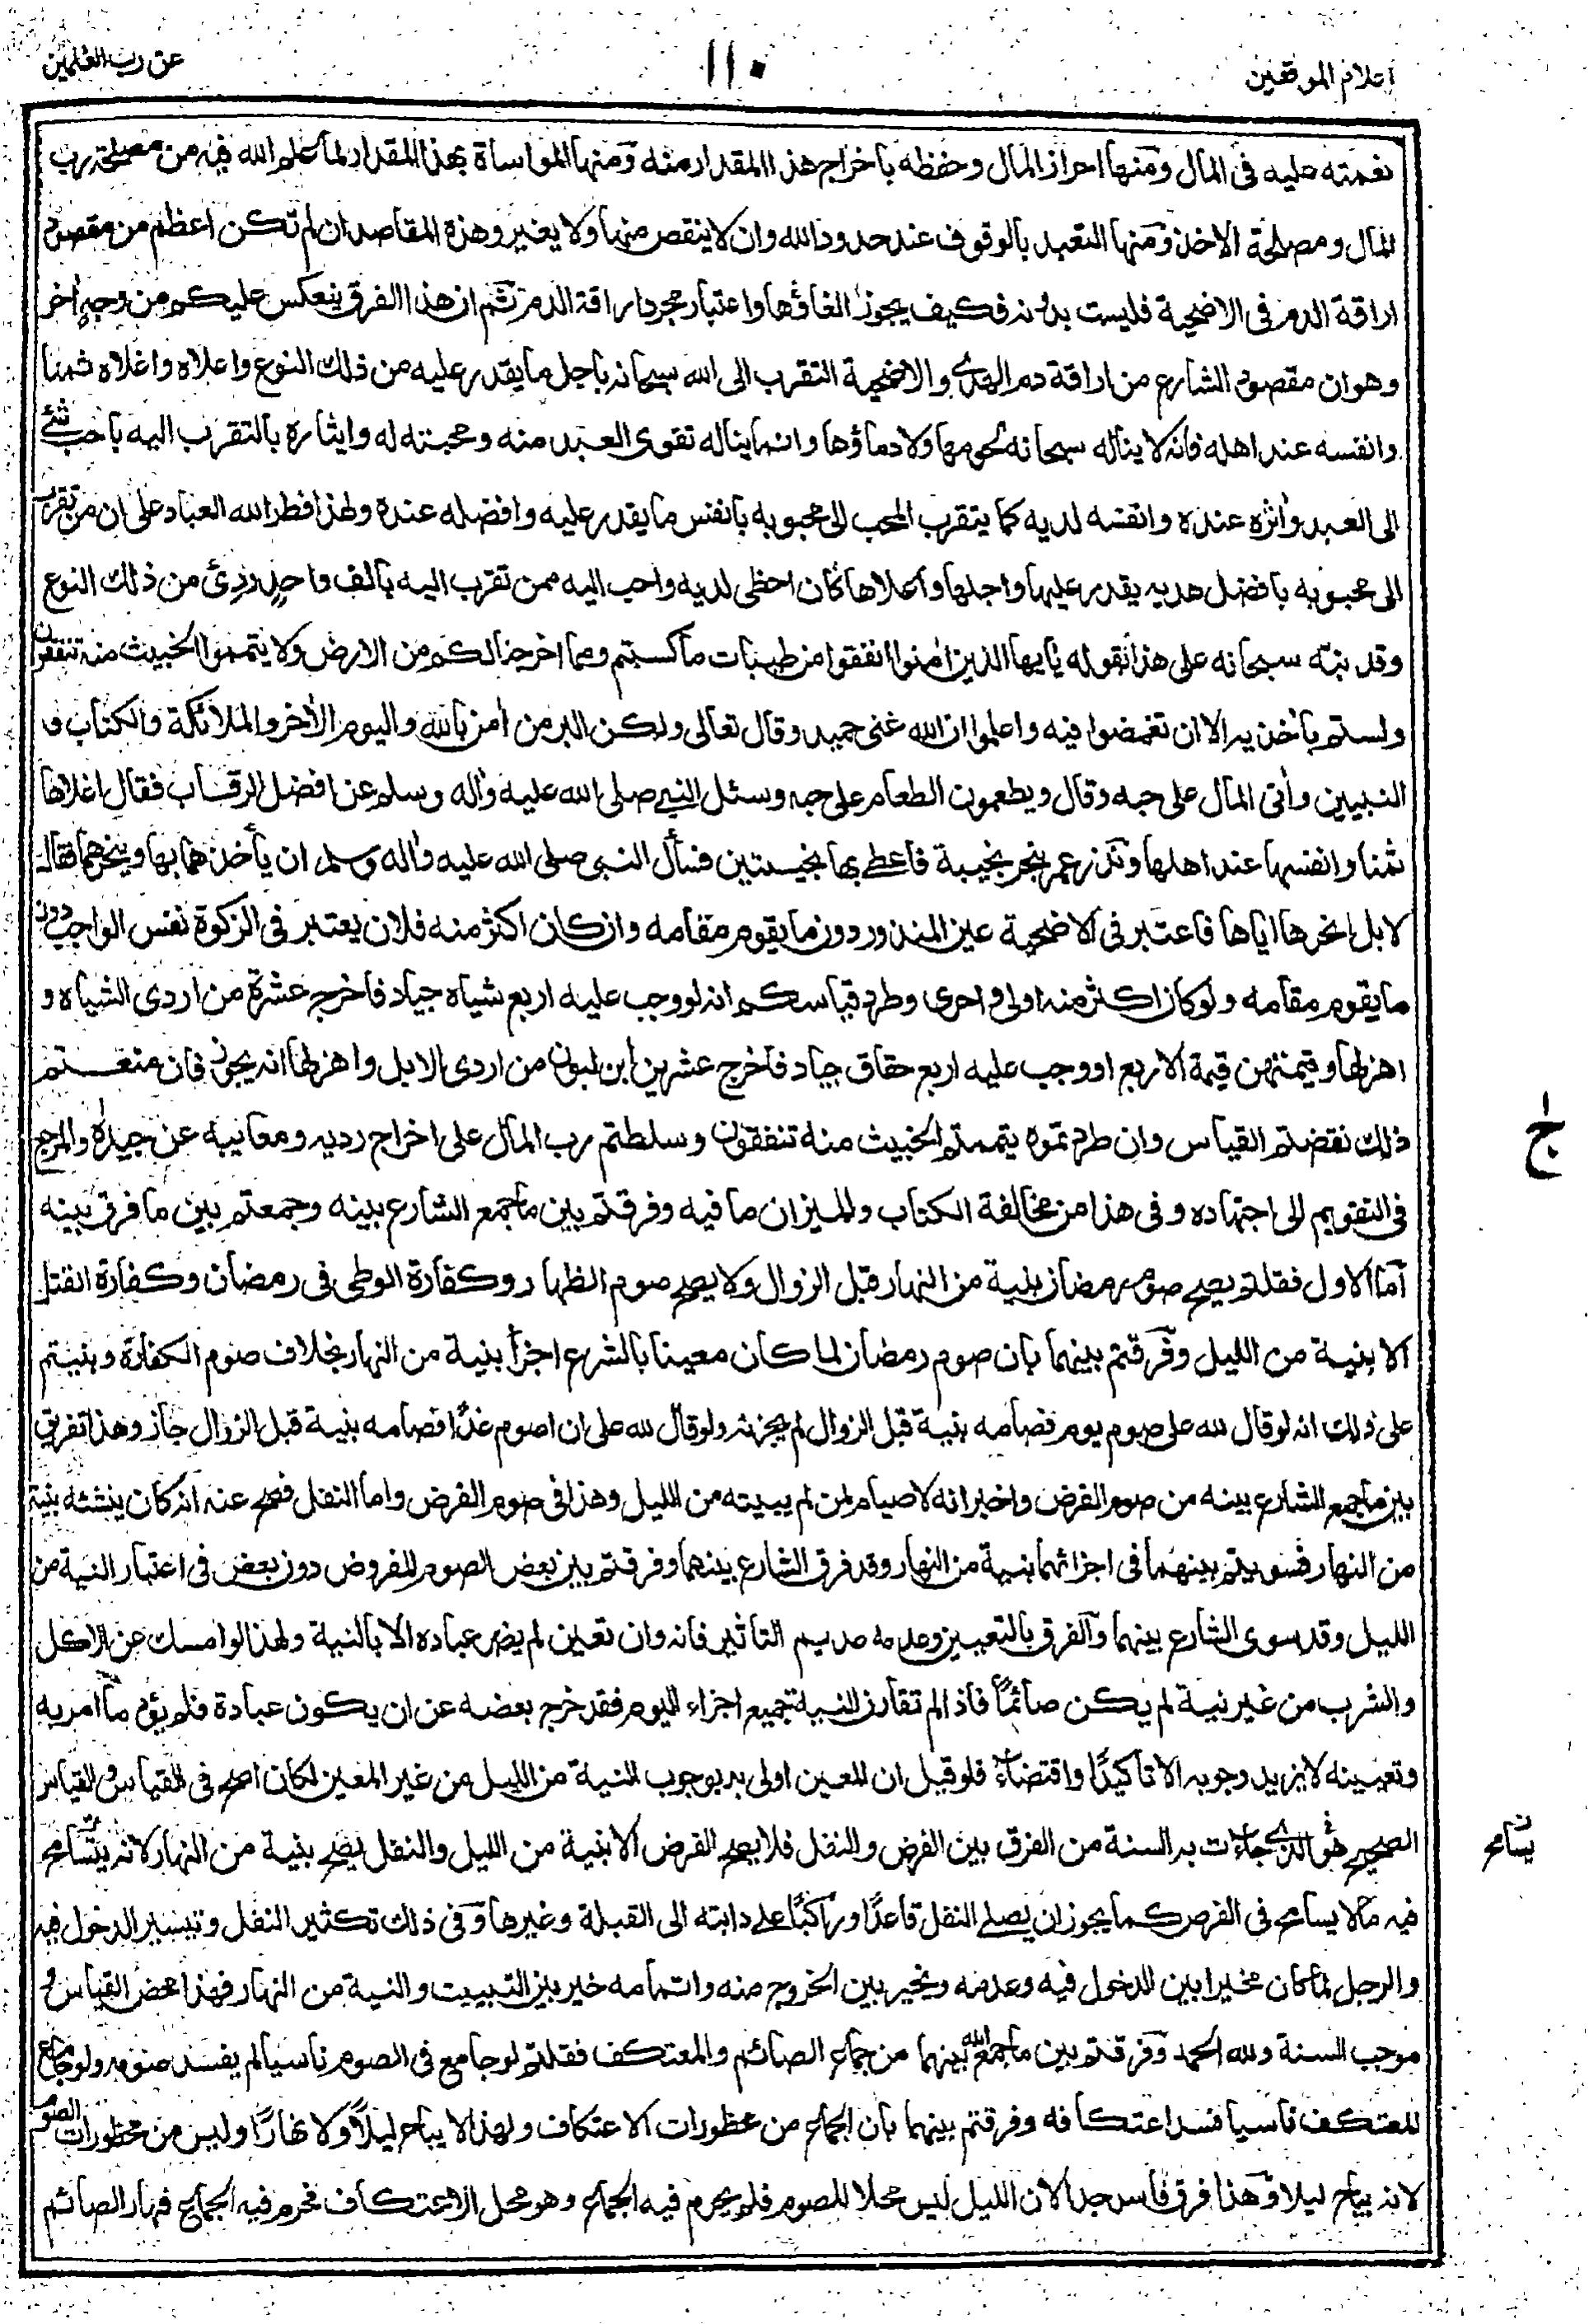 اعلام الموقعين
١١٠
عن رب العلمين
نعمته عليه فى المال ومنها احراز المال وحفظه باخراج هذا المقدار منه ومنها المواساة بهذا المقدار لما علم الله فيه من مصلحة رب
المال ومصلحة الاخذ ومنها التعبد بالوقوف عند حدود الله وان لا ينقص منها ولا يغير وهذه المقاصد ان لم تكن اعظم من مقصود
اراقة الدم فى الاضحية فليست بدونه فكيف يجوز الغاؤها واعتبار مجرد اراقة الدم ثم ان هذا الفرق ينعكس عليكم من وجهٍ اخر
وهو ان مقصود الشارع من اراقة دم الهدى والاضحية التقرب الى الله سبحانه باجل ما يقدر عليه من ذلك النوع واعلاه واغلاه ثمنا
وانفسه عند اهله فانه لا يناله سبحانه لحومها ولا دماؤها وانما يناله تقوى العبد منه ومحبته له وايثاره بالتقرب اليه باحب شئ
الى العبد واٰثره عنده وانفسه لديه كما يتقرب المحب الى محبوبه بانفس ما يقدر عليه وافضله عنده ولهذا فطر الله العباد على ان من تقرب
الى محبوبه بافضل هديه يقدر عليها واجلها واعلاها كان احظى لديه واحب اليه ممن تقرب اليه بالف واحدٍ ردئ من ذلك النوع
وقد نبّه سبحانه على هذا بقوله يٰايها الذين اٰمنوا انفقوا من طيبات ما كسبتم ومما اخرجنا لكم من الارض ولا يتمموا الخبيث منه تنفقون
ولستم باٰخذيه الا ان تغمضوا فيه واعلموا ان الله غنى حميد وقال تعالى ولكن البر من اٰمن بالله واليوم الاٰخر والملائكة والكتاب و
النبيين واٰتى المال على حبه وقال ويطعمون الطعام على حبه وسئل النبى صلى الله عليه واٰله وسلم عن افضل الرقاب فقال اغلاها
ثمنا وانفسها عند اهلها ونذر عمر ينحر نجيبة فاعطى بها نجيبتين فسأل النبى صلى الله عليه واٰله وسلم ان يأخذهما بها وينحرهما فقال
لا بل انحرها اياها فاعتبر فى الاضحية عين المنذور دون ما يقوم مقامه وان كان اكثر منه فلان يعتبر فى الزكوة نفس الواجب دون
ما يقوم مقامه ولو كان اكثر منه اولى واحرى وطرد قياسكم انه لو وجب عليه اربع شياه جياد فاخرج عشرة من اردى الشياه و
اهزلها وقيمتهن قيمة الاربع او وجب عليه اربع حقاق جياد فاخرج عشرين ابن لبون من اردى الابل واهزلها انه يجوز فان منعتم
ذلك نقضتم القياس وان طردتموه يتممتم الخبيث منه تنفقون وسلطتم رب المال على اخراج رديه ومعايبه عن جيده والمرجع
فى التقويم الى اجتهاده وفى هذا من مخالفة الكتاب والميزان ما فيه وفرقتم بين ما جمع الشارع بينه وجمعتم بين ما فرق بينه
اما الاول فقلتم يصح صوم رمضان بنية من النهار قبل الزوال ولا يصح صوم الظهار وكفارة الوطى فى رمضان وكفارة القتل
الا بنية من الليل وفرقتم بينهما بان صوم رمضان لما كان معينا بالشرع اجزأ بنية من النهار بخلاف صوم الكفارة وبنيتم
على ذلك انه لو قال لله على صوم يوم فصامه بنية قبل الزوال لم يجزئه ولو قال لله على ان اصوم غدًا فصامه بنية قبل الزوال جاز وهذا تفريق
بين ما جمع الشارع بينه من صوم الفرض واخبر انه لا صيام لمن لم يبيته من الليل وهذا فى صوم الفرض واما النفل فصح عنه انه كان ينشئه بنية
من النهار فسويتم بينهما فى اجزائهما بنية من النهار وقد فرق الشارع بينهما وفرقتم بين بعض الصوم المفروض دون بعض فى اعتبار النية من
الليل وقد سوى الشارع بينهما والفرق بالتعيين وعدمه عديم التاثير فانه وان تعين لم يصر عباده الا بالنية ولهذا لو امسك عن الاكل
والشرب من غير نية لم يكن صائمًا فاذا لم تقارن النية جميع اجزاء اليوم فقد خرج بعضه عن ان يكون عبادة فلم يؤد ما امر به
وتعيينه لا يزيد وجوبه الا تأكيدًا واقتضاءً فلو قيل ان المعين اولى بوجوب النية من الليل من غير المعين لكان اصح فى القياس والقياس
الصحيح هو الذى جاءت به السنة من الفرق بين الفرض والنفل فلا يصح الفرض الا بنية من الليل والنفل يصح بنية من النهار لانه يتسامح
فيه ما لا يسامح فى الفرض كما يجوز ان يصلى النفل قاعدًا وراكبًا على دابته الى القبلة وغيرها وفى ذلك تكثير النفل وتيسير الدخول فيه
والرجل لما كان مخيرا بين الدخول فيه وعدمه ويخير بين الخروج منه واتمامه خير بين التبييت والنية من النهار فهذا محض القياس و
موجب السنة ولله الحمد وفرقتم بين ما جمع الله بينهما من جماع الصائم والمعتكف فقلتم لو جامع فى الصوم ناسيا لم يفسد صومه ولو جامع
المعتكف ناسيا فسد اعتكافه وفرقتم بينهما بان الجماع من محظورات الاعتكاف ولهذا لا يباح ليلًا ولا نهارًا وليس من محظورات الصوم
لانه يباح ليلا وهذا فرق فاسد جدا لان الليل ليس محلا للصوم فلم يحرم فيه الجماع وهو محل الاعتكاف فحرم فيه الجماع فنهار الصائم